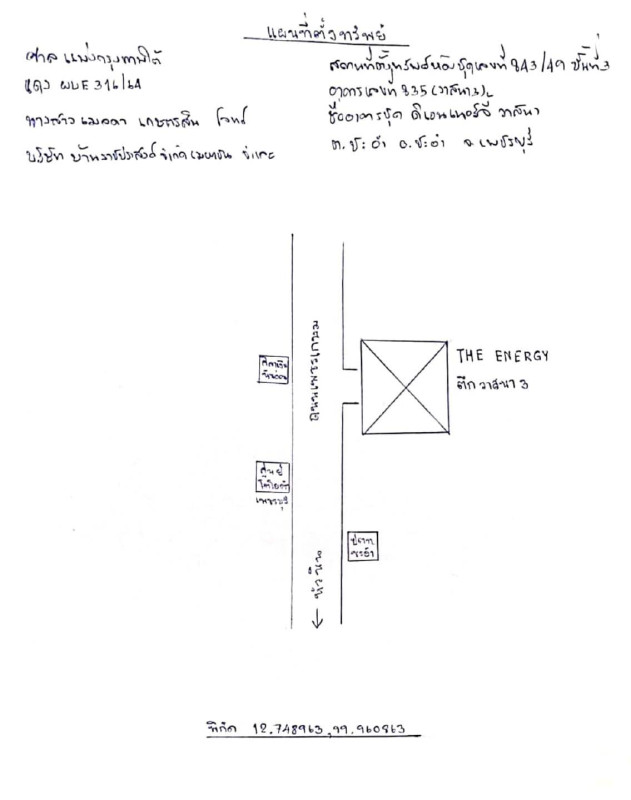 แผนที่ตั้งทรัพย์
ศาล แพ่งกรุงเทพใต้
แดง ผบE 316/64
นางสาว เมลดา เกษตรสิน โจทก์
บริษัท บ้านราชประสงค์ จำกัด (มหาชน) จำเลย
สถานที่ตั้งทรัพย์ห้องชุดเลขที่ 843/49 ชั้นที่ 3
อาคารเลขที่ 835 (วาสนา3)
ชื่ออาคารชุด ดิเอนเนอร์จี วาสนา
ต.ชะอำ อ.ชะอำ จ.เพชรบุรี
ถนนเพชรเกษม
THE ENERGY
ตึกวาสนา 3
ศูนย์
โตโยต้า
เพชรบุรี
ชะอำ
หัวหิน
พิกัด 12.748963,99.960863